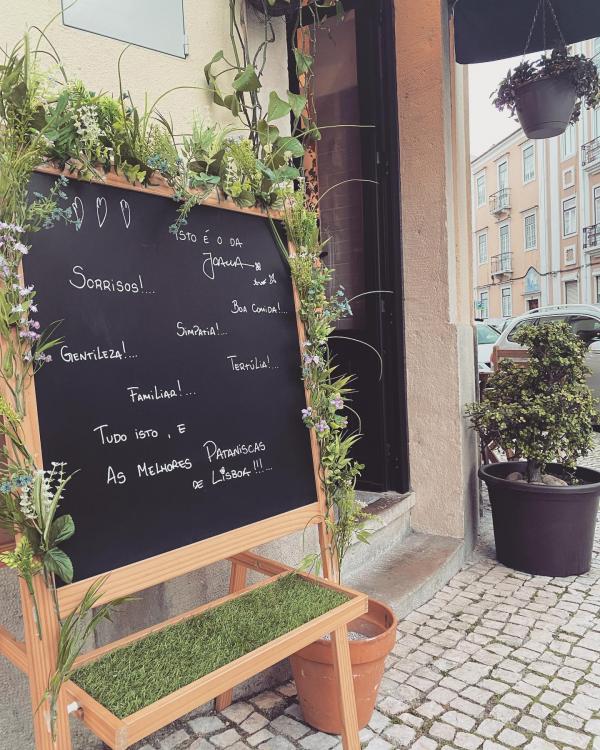 Isto é o da
Joana
Sorrisos!...
Boa Comida!...
Simpatia!...
Gentileza!...
Tertúlia!...
Familiar!...
Tudo isto, e
as melhores Pataniscas
de Lisboa!!!...